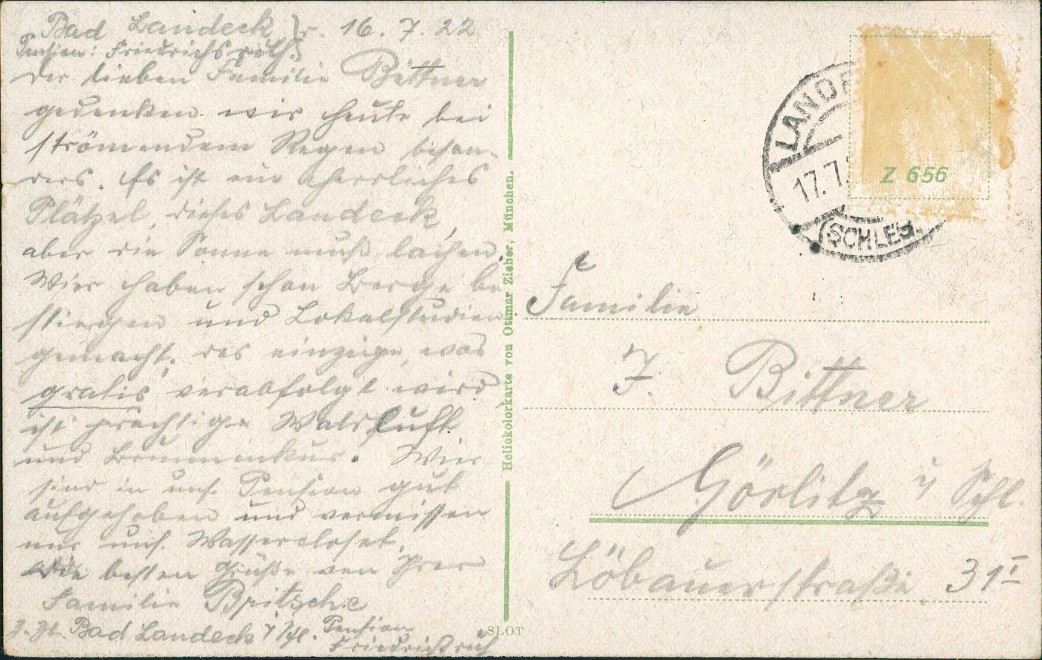 Bad Landeck, 16.7.22
Pension: Friedrichsruh.
Der lieben Familie Bittner
gedenken wir heute bei
strömendem Regen beson-
ders. Es ist ein herrliches
Plätzel, dieses Landeck,
aber die Sonne muß lachen.
Wir haben schon Berge be-
stiegen und Lokalstudien
gemacht, das einzige, was
gratis verabfolgt wird
ist prächtige Waldluft
und Brunnenkur. Wir
sind in uns. Pension gut
aufgehoben und vermissen
nur uns. Wassercloset.
Die besten Grüße von Ihrer
Familie Britsche
z. Zt. Bad Landeck i/Schl. Pension
Friedrichsruh
Heliokolorkarte von Ottmar Zieher, München.
SLOT
LANDE
17.7.
(SCHLES.
Z 656
Familie
J. Bittner
Görlitz i/Schl.
Löbauerstraße 31 I